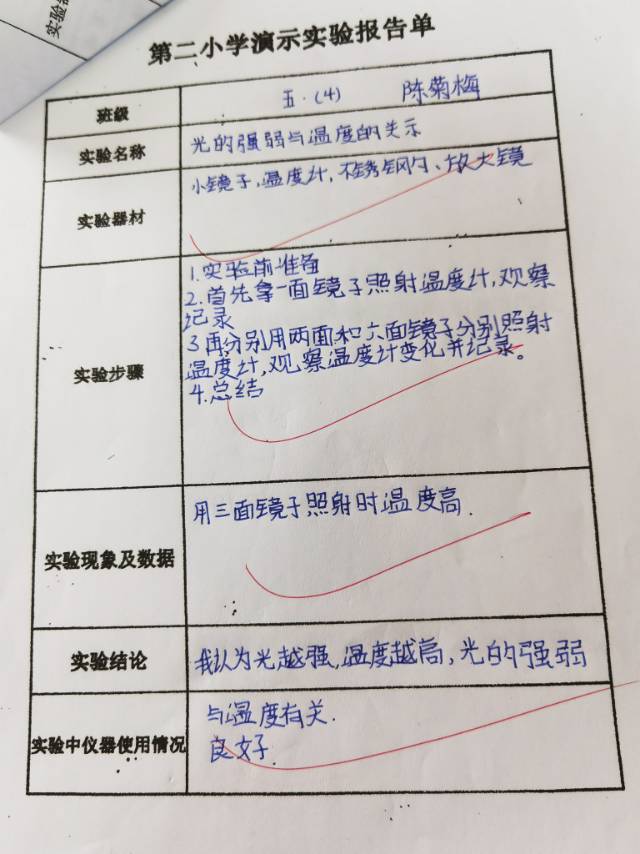 实验
第二小学演示实验报告单
班级
五.(4) 陈菊梅
实验名称
光的强弱与温度的关示
实验器材
小镜子,温度计,不锈钢勺、放大镜
实验步骤
1.实验前准备
2.首先拿一面镜子照射温度计,观察
记录
3再分别用两面和六面镜子分别照射
温度计,观察温度计变化并记录。
4.总结
实验现象及数据
用三面镜子照射时温度高.
实验结论
我认为光越强,温度越高,光的强弱
与温度有关.
实验中仪器使用情况
良好